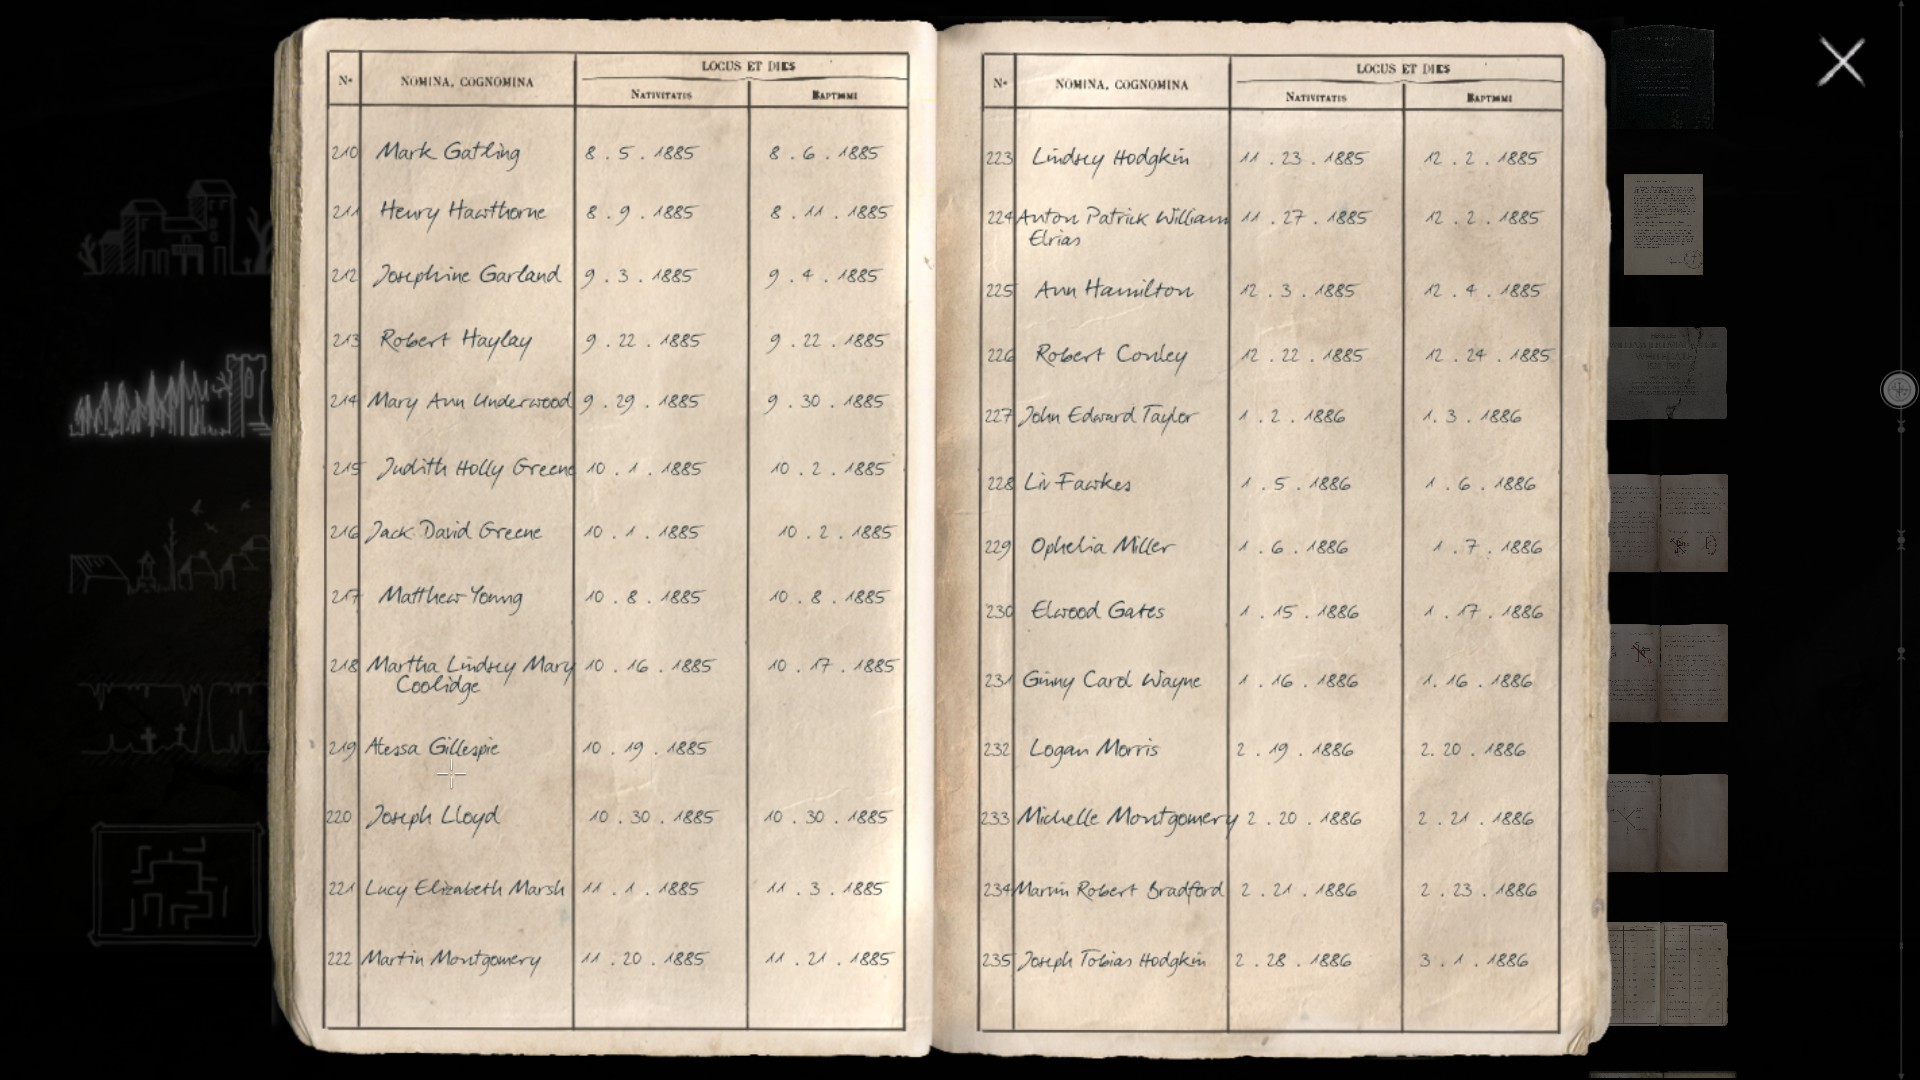 LOCUS ET DIES
Nº NOMINA, COGNOMINA
NATIVITATIS BAPTISMI
210 Mark Gatling 8 . 5 . 1885 8 . 6 . 1885
211 Henry Hawthorne 8 . 9 . 1885 8 . 11 . 1885
212 Josephine Garland 9 . 3 . 1885 9 . 4 . 1885
213 Robert Haylay 9 . 22 . 1885 9 . 22 . 1885
214 Mary Ann Underwood 9 . 29 . 1885 9 . 30 . 1885
215 Judith Holly Greene 10 . 1 . 1885 10 . 2 . 1885
216 Jack David Greene 10 . 1 . 1885 10 . 2 . 1885
217 Matthew Young 10 . 8 . 1885 10 . 8 . 1885
218 Martha Lindsey Mary 10 . 16 . 1885 10 . 17 . 1885
Coolidge
219 Alessa Gillespie 10 . 19 . 1885
220 Joseph Lloyd 10 . 30 . 1885 10 . 30 . 1885
221 Lucy Elizabeth Marsh 11 . 1 . 1885 11 . 3 . 1885
222 Martin Montgomery 11 . 20 . 1885 11 . 21 . 1885
LOCUS ET DIES
Nº NOMINA, COGNOMINA
NATIVITATIS BAPTISMI
223 Lindsey Hodgkin 11 . 23 . 1885 12 . 2 . 1885
224 Anton Patrick William 11 . 27 . 1885 12 . 2 . 1885
Elrias
225 Ann Hamilton 12 . 3 . 1885 12 . 4 . 1885
226 Robert Conley 12 . 22 . 1885 12 . 24 . 1885
227 John Edward Taylor 1 . 2 . 1886 1 . 3 . 1886
228 Liv Fawkes 1 . 5 . 1886 1 . 6 . 1886
229 Ophelia Miller 1 . 6 . 1886 1 . 7 . 1886
230 Elwood Gates 1 . 15 . 1886 1 . 17 . 1886
231 Ginny Carol Wayne 1 . 16 . 1886 1 . 16 . 1886
232 Logan Morris 2 . 19 . 1886 2 . 20 . 1886
233 Michelle Montgomery 2 . 20 . 1886 2 . 21 . 1886
234 Marvin Robert Bradford 2 . 21 . 1886 2 . 23 . 1886
235 Joseph Tobias Hodgkin 2 . 28 . 1886 3 . 1 . 1886